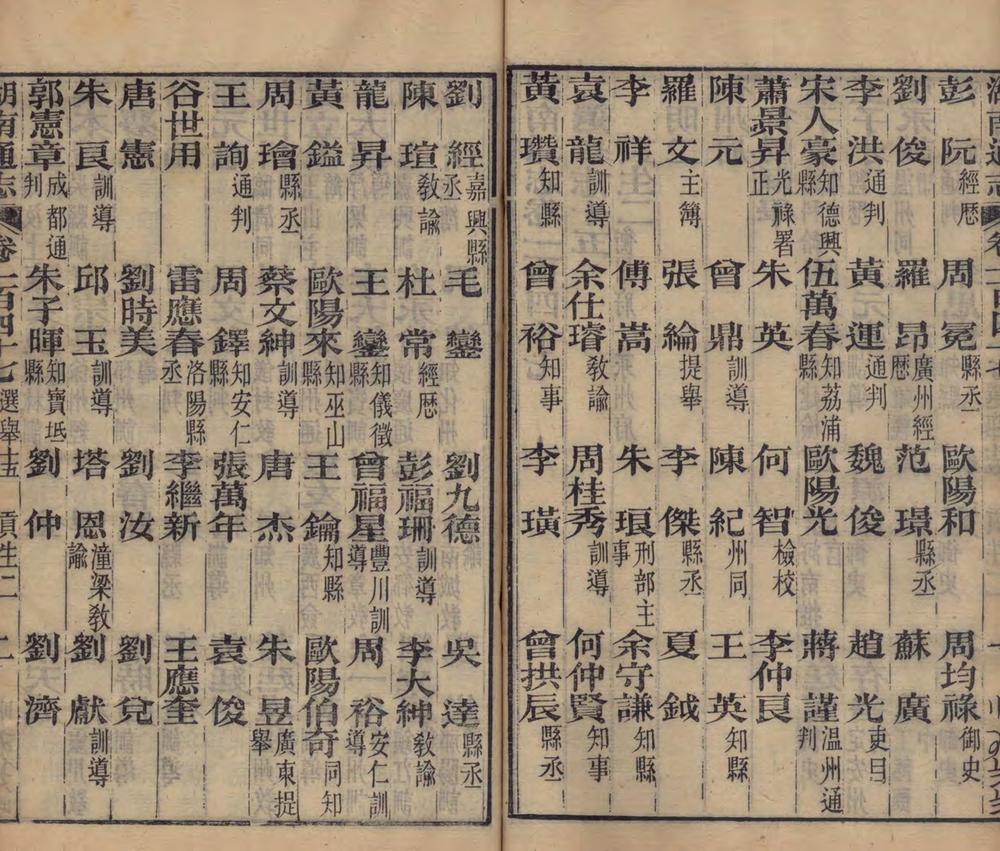 彭阮經歷 周冕縣丞 歐陽和 周均祿御史
劉俊 羅昂廣州經歷 范璟縣丞 蘇廣
李洪通判 黃運通判 魏俊 趙光吏目
宋人豪知德興縣 伍萬春知荔浦縣 歐陽光 蔣謹溫州通判
蕭景昇光祿署正 朱英 何智檢校 李仲良
陳元 曾鼎訓導 陳紀州同 王英知縣
羅文主簿 張綸提舉 李傑縣丞 夏鉞
李祥 傅嵩 朱琅刑部主事 余守謙知縣
袁龍訓導 余仕璿教諭 周桂秀訓導 何仲賢知事
黃瓚知縣 曾裕知事 李璜 曾拱辰縣丞
劉經嘉興縣丞 毛鸞 劉九德 吳達縣丞
陳瑄教諭 杜常經歷 彭福珊訓導 李大紳教諭
龍昇 王鑾知儀徵縣 曾福星豐川訓導 周裕安仁訓導
黃鎰 歐陽來知巫山縣 王鑰知縣 歐陽伯奇同知
周璯縣丞 蔡文紳訓導 唐杰 朱昱廣東提舉
王詢通判 周文鐸知安仁縣 張萬年 袁俊
谷世用 雷應春洛陽縣丞 李繼新 王應奎
唐憲 劉時美 劉汝 劉兌
朱良訓導 邱玉訓導 塔恩潼梁教諭 劉獻訓導
郭憲章成都通判 朱子暉知寶坻縣 劉仲 劉濟
湖南通志 卷二百四十七 選舉十五 貢生二 二